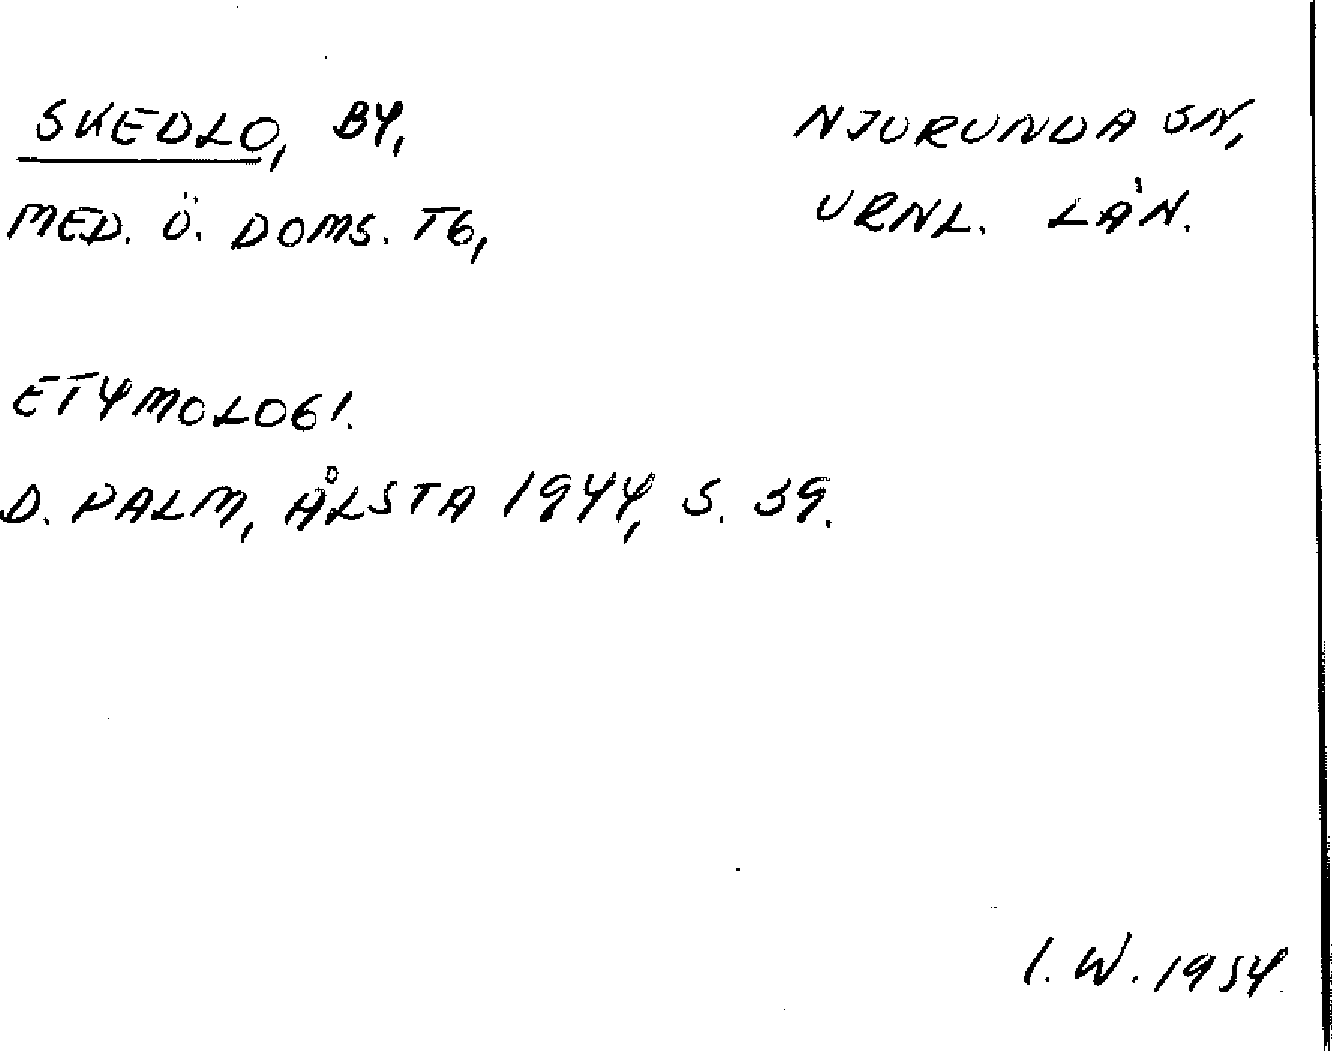 SKEDLO, BY,
MED. Ö. DOMS. TG,
NJURUNDA SN,
VRNL. LÄN.
ETYMOLOGI.
D. PALM, ÅLSTA 1944, S. 39.
I. W. 1954